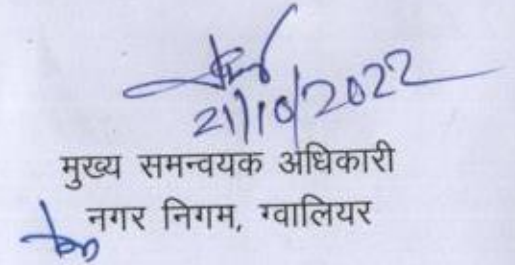 21/10/2022
मुख्य समन्वयक अधिकारी
नगर निगम, ग्वालियर